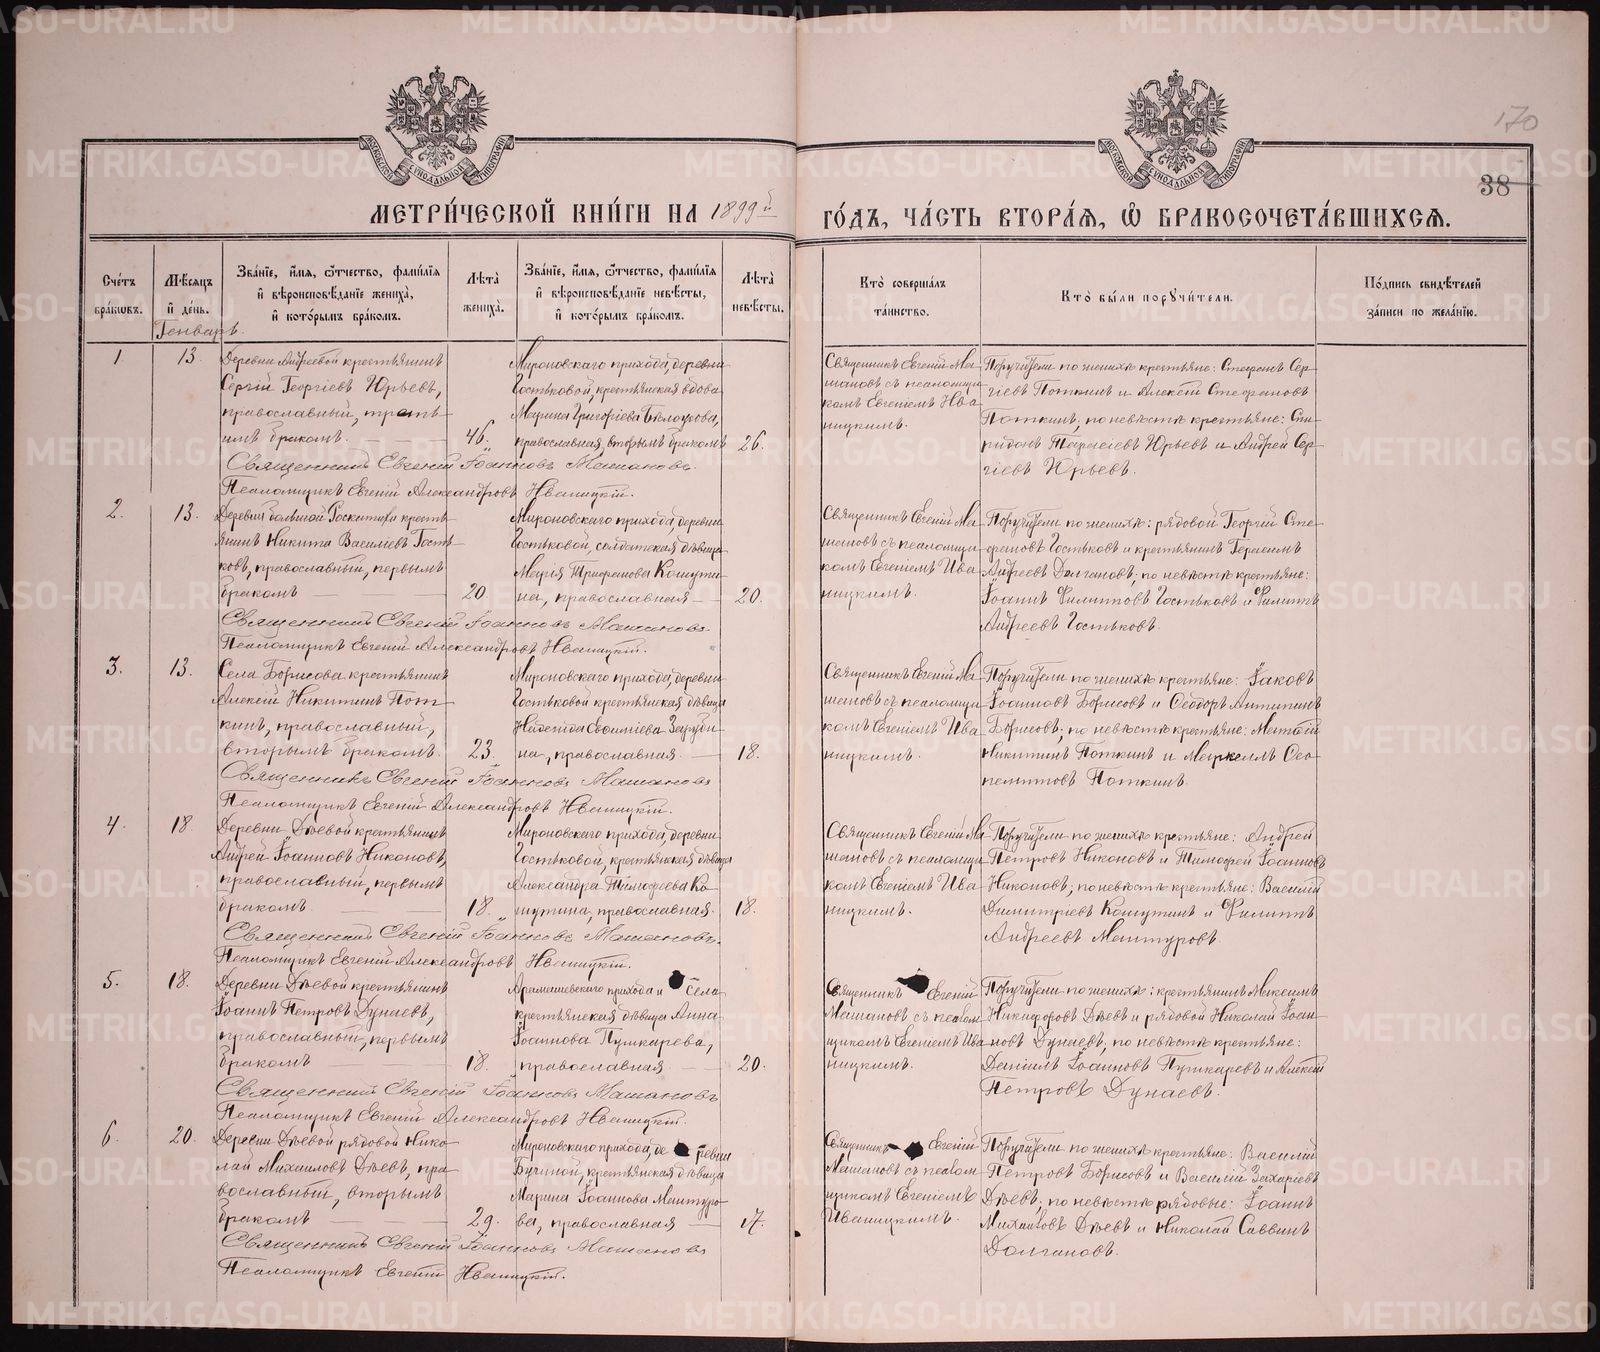 170
38
МЕТРИ́ЧЕСКОЙ КНИ́ГИ НА 1899й ГО́ДЪ, ЧА́СТЬ ВТОРА́Я, Ѡ БРАКОСОЧЕТА́ВШИХСЯ.
Сче́тъ бра́кѡвъ.
Мѣ́сяцъ и день.
Зва́ніе, и́мя, ѻ́тчество, фами́лія и вѣроисповѣ́даніе жениха̀, и кото́рымъ бра́комъ.
Лѣта̀ жениха̀.
Зва́ніе, и́мя, ѻ́тчество, фами́лія и вѣроисповѣ́даніе невѣ́сты, и кото́рымъ бра́комъ.
Лѣта̀ невѣ́сты.
Кто̀ соверша́лъ та́инство.
Кто̀ бы́ли порꙋчи́тели.
По́дпись свидѣ́телей за́писи по жела́нію.
Генварь.
1 13.
Деревни Андреевой крестьянинъ
Сергій Георгіевъ Юрьевъ,
православный, треть-
имъ бракомъ.
46.
Мироновскаго прихода, деревни
Гостьковой, крестьянская вдова
Марина Григоріева Бѣлоусова,
православная, вторымъ бракомъ
26.
Священникъ Евгеній Ма-
шановъ съ псаломщи-
комъ Евгеніемъ Ива-
ницкимъ.
Поручители по женихѣ крестьяне: Стефанъ Сер-
гіевъ Поткинъ и Алексѣй Стефановъ
Поткинъ, по невѣстѣ крестьяне: Спи-
ридонъ Тарасіевъ Юрьевъ и Андрей Сер-
гіевъ Юрьевъ.
Священникъ Евгеній Іоанновъ Машановъ.
Псаломщикъ Евгеній Александровъ Иваницкій.
2. 13.
Деревни Большой Роскатихи кресть-
янинъ Никита Василіевъ Гость-
ковъ, православный, первымъ
бракомъ
20.
Мироновскаго прихода, деревни
Гостьковой, солдатская дѣвица
Марія Трифанова Кошути-
на, православная
20.
Священникъ Евгеній Ма-
шановъ съ псаломщи-
комъ Евгеніемъ Ива-
ницкимъ.
Поручители по женихѣ: рядовой Георгій Сте-
фановъ Гостьковъ и крестьянинъ Герасимъ
Андреевъ Долгановъ; по невѣстѣ крестьяне:
Іоаннъ Филипповъ Гостьковъ и Филиппъ
Андреевъ Гостьковъ.
Священникъ Евгеній Іоанновъ Машановъ.
Псаломщикъ Евгеній Александровъ Иваницкій.
3. 13.
Села Борисова крестьянинъ
Алексѣй Никитинъ Пот-
кинъ, православный,
вторымъ бракомъ.
23.
Мироновскаго прихода, деревни
Гостьковой крестьянская дѣвица
Надежда Евфиміева Загуби-
на, православная.
18.
Священникъ Евгеній Ма-
шановъ съ псаломщи-
комъ Евгеніемъ Ива-
ницкимъ.
Поручители по женихѣ крестьяне: Іаковъ
Іоанновъ Борисовъ и Ѳеодоръ Антипинъ
Борисовъ; по невѣстѣ крестьяне: Матѳій
Никитинъ Поткинъ и Маркеллъ Ѳео-
пемптовъ Поткинъ.
Священникъ Евгеній Іоанновъ Машановъ
Псаломщикъ Евгеній Александровъ Иваницкій.
4. 18.
Деревни Дѣевой крестьянинъ
Андрей Іоанновъ Никоновъ,
православный, первымъ
бракомъ.
18.
Мироновскаго прихода, деревни
Гостьковой, крестьянская дѣвица
Александра Тимофеева Ко-
шутина, православная.
18.
Священникъ Евгеній Ма-
шановъ съ псаломщи-
комъ Евгеніемъ Ива-
ницкимъ.
Поручители по женихѣ крестьяне: Андрей
Петровъ Никоновъ и Тимофей Іоанновъ
Никоновъ; по невѣстѣ крестьяне: Василій
Димитріевъ Кошутинъ и Филиппъ
Андреевъ Мантуровъ.
Священникъ Евгеній Іоанновъ Машановъ.
Псаломщикъ Евгеній Александровъ Иваницкій.
5. 18.
Деревни Дѣевой крестьянинъ
Іоаннъ Петровъ Дунаевъ,
православный, первымъ
бракомъ
18.
Арамашевскаго прихода и села
крестьянская дѣвица Анна
Іоаннова Пушкарева,
православная
20.
Священникъ Евгеній
Машановъ съ псалом-
щикомъ Евгеніемъ Ива-
ницкимъ.
Поручители по женихѣ: крестьянинъ Максимъ
Никифоровъ Дѣевъ и рядовой Николай Іоан-
новъ Дунаевъ, по невѣстѣ крестьяне:
Даніилъ Іоанновъ Пушкаревъ и Алексѣй
Петровъ Дунаевъ.
Священникъ Евгеній Іоанновъ Машановъ
Псаломщикъ Евгеній Александровъ Иваницкій.
6. 20.
Деревни Дѣевой рядовой Нико-
лай Михаиловъ Дѣевъ, пра-
вославный, вторымъ
бракомъ
29.
Мироновскаго прихода, деревни
Бучиной, крестьянская дѣвица
Марина Іоаннова Мантуро-
ва, православная
17.
Священникъ Евгеній
Машановъ съ псалом-
щикомъ Евгеніемъ
Иваницкимъ.
Поручители по женихѣ крестьяне: Василій
Петровъ Борисовъ и Василій Захаріевъ
Дѣевъ; по невѣстѣ рядовые: Іоаннъ
Михаиловъ Дѣевъ и Николай Саввинъ
Долгановъ.
Священникъ Евгеній Іоанновъ Машановъ
Псаломщикъ Евгеній Иваницкій.
METRIKI.GASO-URAL.RU